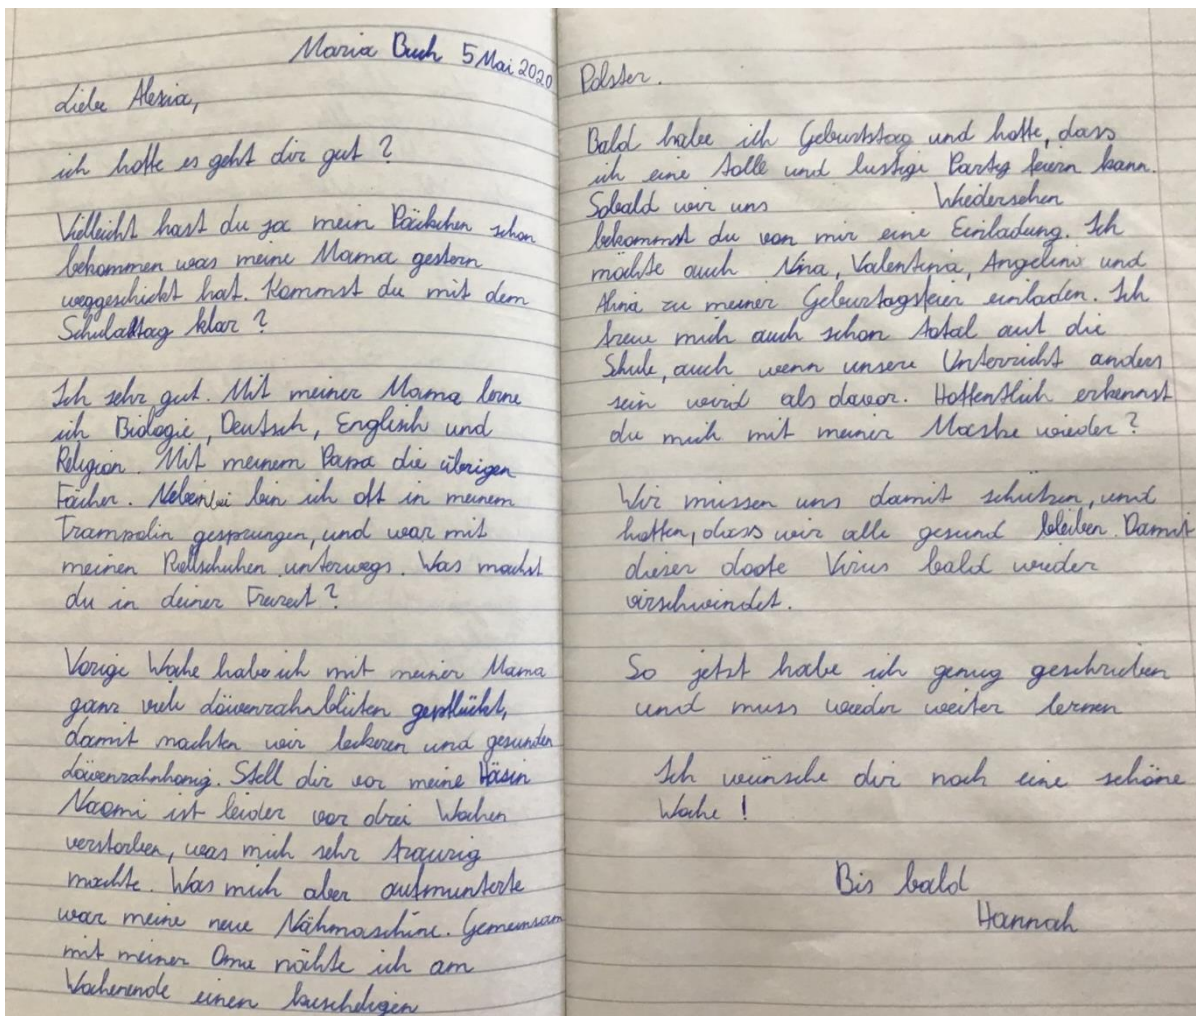 Maria Buch 5 Mai 2020
Liebe Alexia,
ich hoffe es geht dir gut?
Vielleicht hast du ja mein Päckchen schon
bekommen was meine Mama gestern
weggeschickt hat. Kommst du mit dem
Schulalltag klar?
Ich sehr gut. Mit meiner Mama lerne
ich Biologie, Deutsch, Englisch und
Religion. Mit meinem Papa die übrigen
Fächer. Nebenbei bin ich oft in meinem
Trampolin gesprungen, und war mit
meinen Rollschuhen unterwegs. Was machst
du in deiner Freizeit?
Vorige Woche habe ich mit meiner Mama
ganz viele Löwenzahnblüten gepflückt,
damit machten wir leckeren und gesunden
Löwenzahnhonig. Stell dir vor meine Häsin
Naomi ist leider vor drei Wochen
verstorben, was mich sehr traurig
machte. Was mich aber aufmunterte
war meine neue Nähmaschine. Gemeinsam
mit meiner Oma nähte ich am
Wochenende einen kuscheligen
Polster.
Bald habe ich Geburtstag und hoffe, dass
ich eine tolle und lustige Party feiern kann.
Sobald wir uns Wiedersehen
bekommst du von mir eine Einladung. Ich
möchte auch Nina, Valentina, Angelina und
Alina zu meiner Geburtagsfeier einladen. Ich
freue mich auch schon total auf die
Shule, auch wenn unsere Unterricht anders
sein wird als davor. Hoffentlich erkennst
du mich mit meiner Maske wieder?
Wir müssen uns damit schützen, und
hoffen, dass wir alle gesund bleiben. Damit
dieser doofe Virus bald wieder
virschwindet.
So jetzt habe ich genug geschrieben
und muss wieder weiter lernen
Ich wünsche dir noch eine schöne
Woche!
Bis bald
Hannah